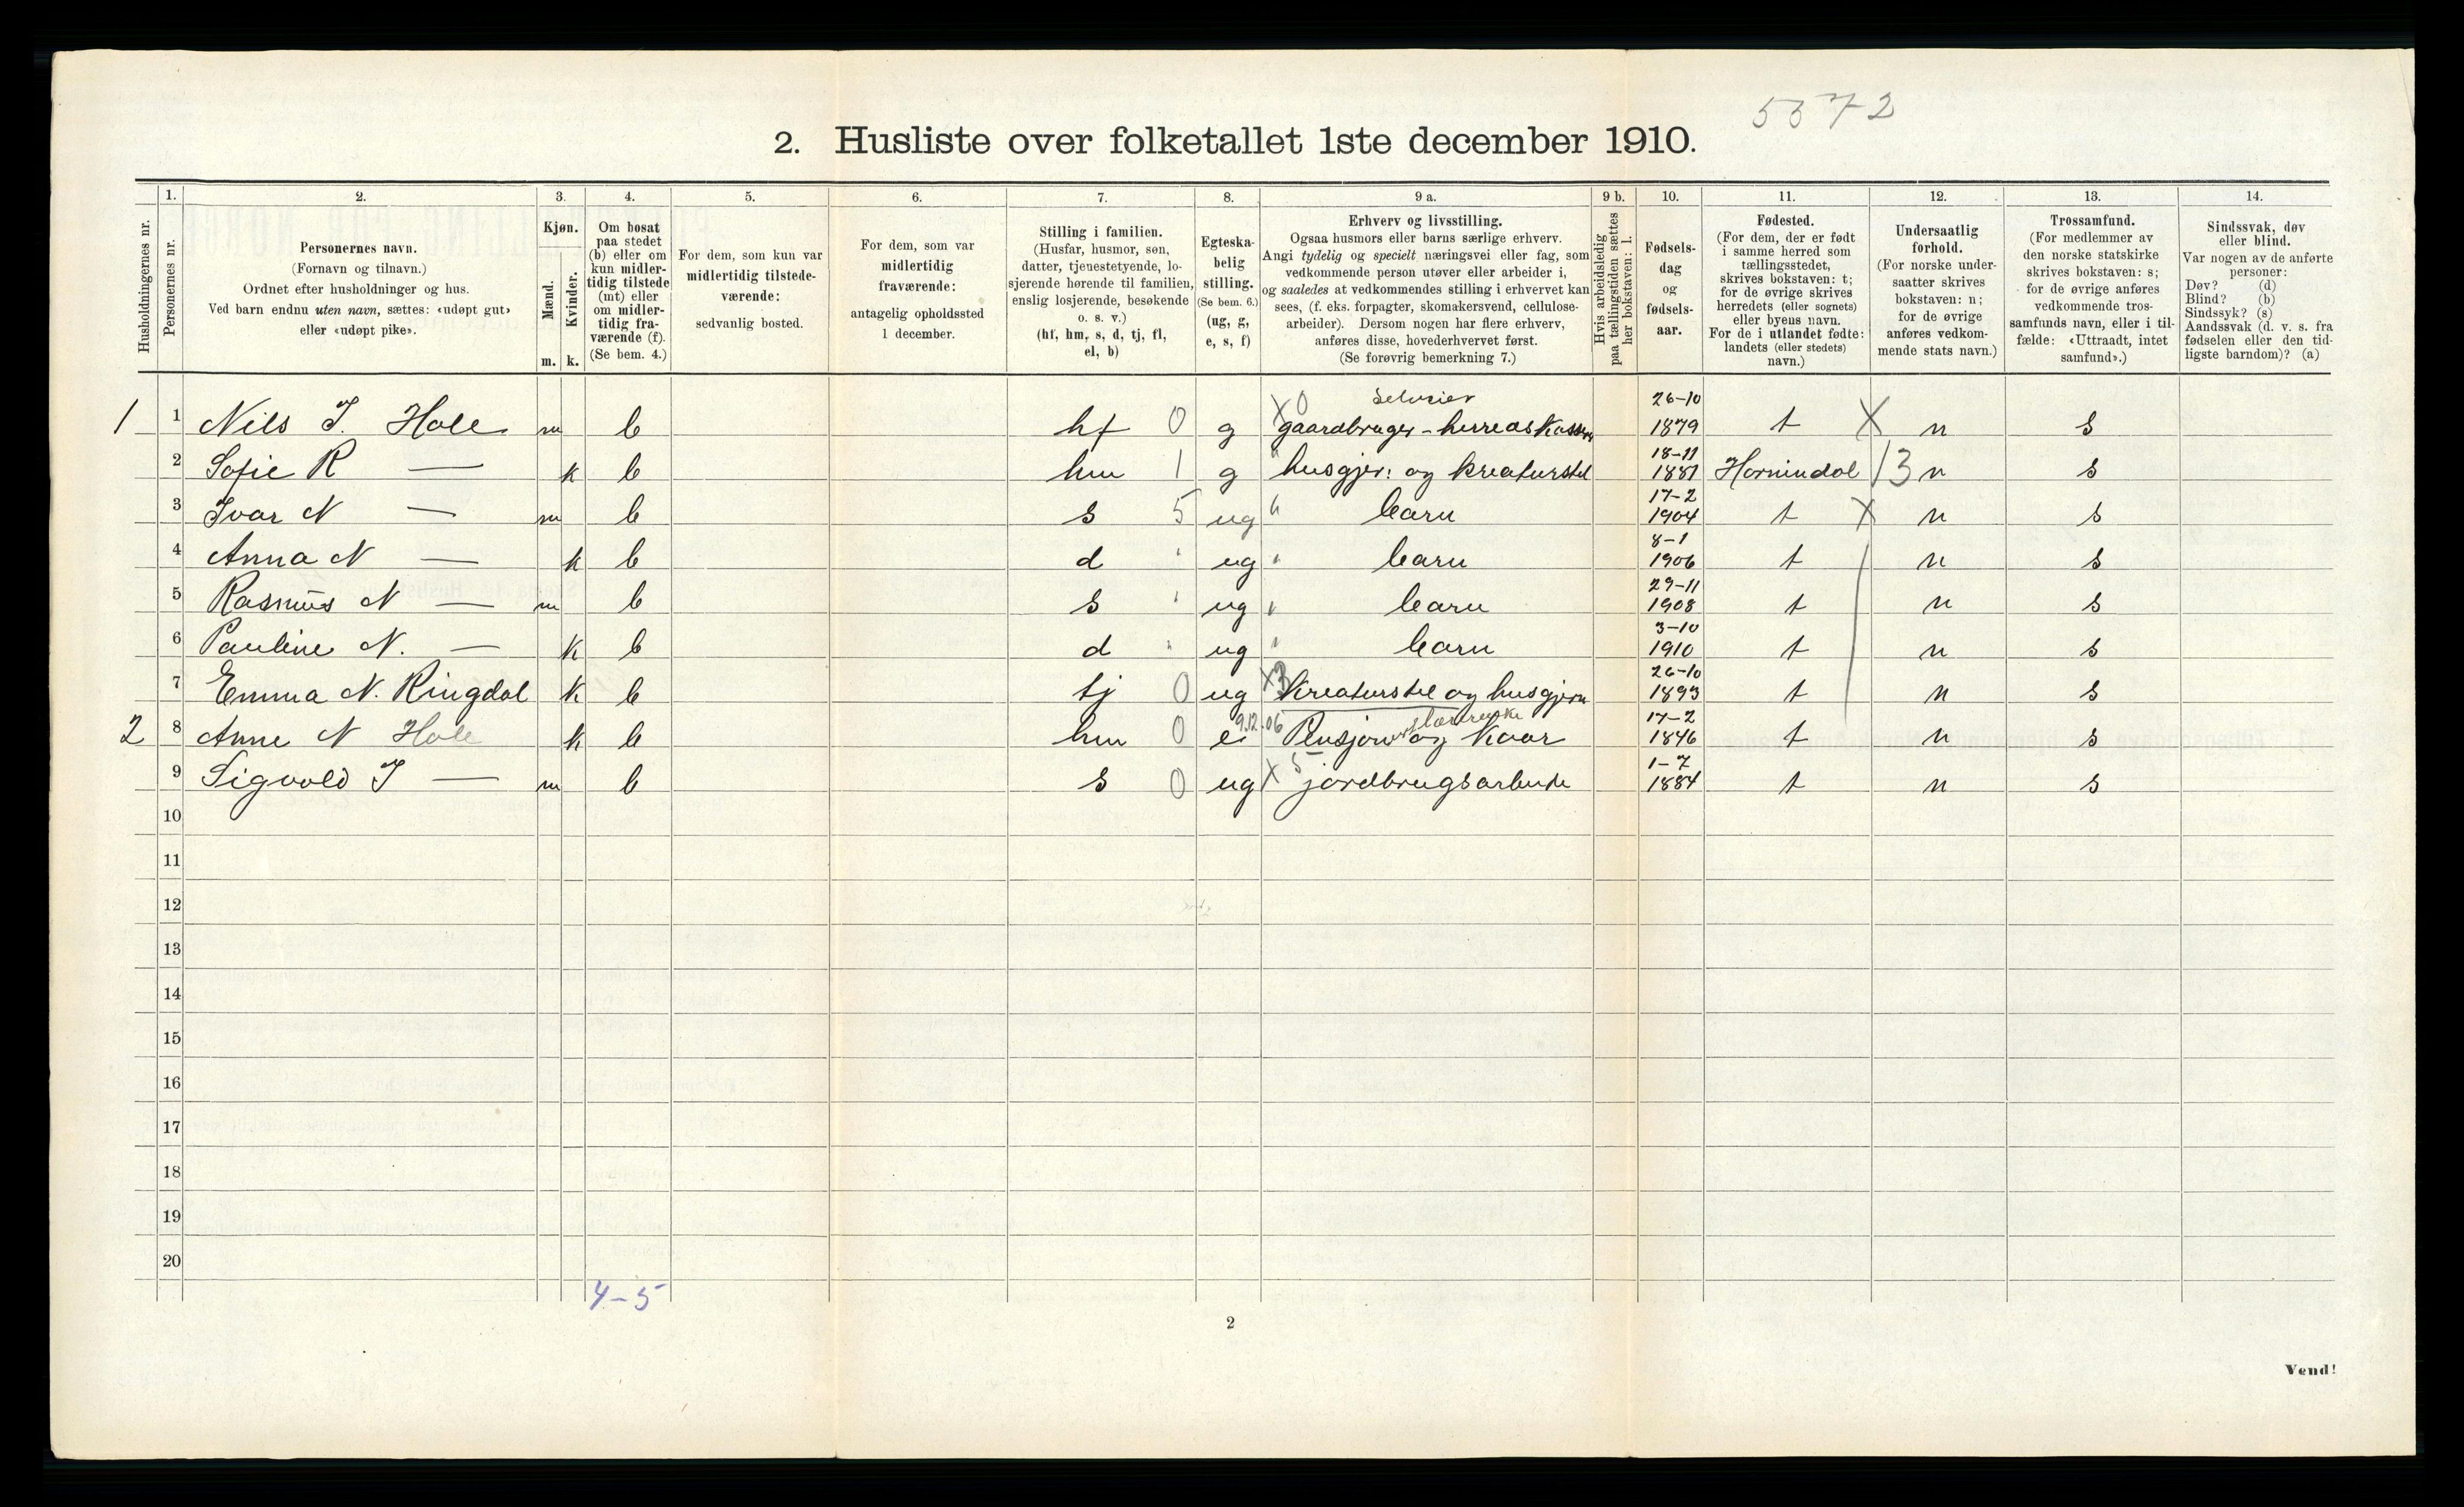 5372
2. Husliste over folketallet 1ste december 1910.
Husholdningernes nr.
1. Personernes nr.
2. Personernes navn. (Fornavn og tilnavn.) Ordnet efter husholdninger og hus. Ved barn endnu uten navn, sættes: «udøpt gut» eller «udøpt pike».
3. Kjøn. Mænd. m. Kvinder. k.
4. Om bosat paa stedet (b) eller om kun midlertidig tilstede (mt) eller om midlertidig fraværende (f). (Se bem. 4.)
5. For dem, som kun var midlertidig tilstedeværende: sedvanlig bosted.
6. For dem, som var midlertidig fraværende: antagelig opholdssted 1 december.
7. Stilling i familien. (Husfar, husmor, søn, datter, tjenestetyende, losjerende hørende til familien, enslig losjerende, besøkende o. s. v.) (hf, hm, s, d, tj, fl, el, b)
8. Egteskabelig stilling. (Se bem. 6.) (ug, g, e, s, f)
9 a. Erhverv og livsstilling. Ogsaa husmors eller barns særlige erhverv. Angi tydelig og specielt næringsvei eller fag, som vedkommende person utøver eller arbeider i, og saaledes at vedkommendes stilling i erhvervet kan sees, (f. eks. forpagter, skomakersvend, cellulosearbeider). Dersom nogen har flere erhverv, anføres disse, hovederhvervet først. (Se forøvrig bemerkning 7.)
9 b. Hvis arbeidsledig paa tællingstiden sættes her bokstaven: l.
10. Fødselsdag og fødselsaar.
11. Fødested. (For dem, der er født i samme herred som tællingsstedet, skrives bokstaven: t; for de øvrige skrives herredets (eller sognets) eller byens navn. For de i utlandet fødte: landets (eller stedets) navn.)
12. Undersaatlig forhold. (For norske undersaatter skrives bokstaven: n; for de øvrige anføres vedkommende stats navn.)
13. Trossamfund. (For medlemmer av den norske statskirke skrives bokstaven: s; for de øvrige anføres vedkommende trossamfunds navn, eller i tilfælde: «Uttraadt, intet samfund».)
14. Sindssvak, døv eller blind. Var nogen av de anførte personer: Døv? (d) Blind? (b) Sindssyk? (s) Aandssvak (d. v. s. fra fødselen eller den tidligste barndom)? (a)
1 1 Nils J. Hole m b hf 0 g X 0 selveier gaardbruger - herredskasserer 26-10 1879 t X n s
2 Sofie R — k b hm 1 g " husgjer: og kreaturstel 18-11 1881 Hornindal 13 n s
3 Ivar N — m b s 5 ug " barn 17-2 1904 t X n s
4 Anna N — k b d " ug " barn 8-1 1906 t n s
5 Rasmus N — m b s " ug " barn 29-11 1908 t n s
6 Pauline N. — k b d " ug " barn 3-10 1910 t n s
7 Emma N. Ringdal k b tj 0 ug X3 Kreaturstel og husgjern 26-10 1893 t n s
2 8 Anne N Hole k b hm 0 e 9.12.06 Pensjon og Kaar 17-2 1846 t n s
9 Sigvald J — m b s 0 ug X 5 jordbrugsarbeide 1-7 1884 t n s
10
11
12
13
14
15
16
17
18
19
20
4-5
2
Vend!